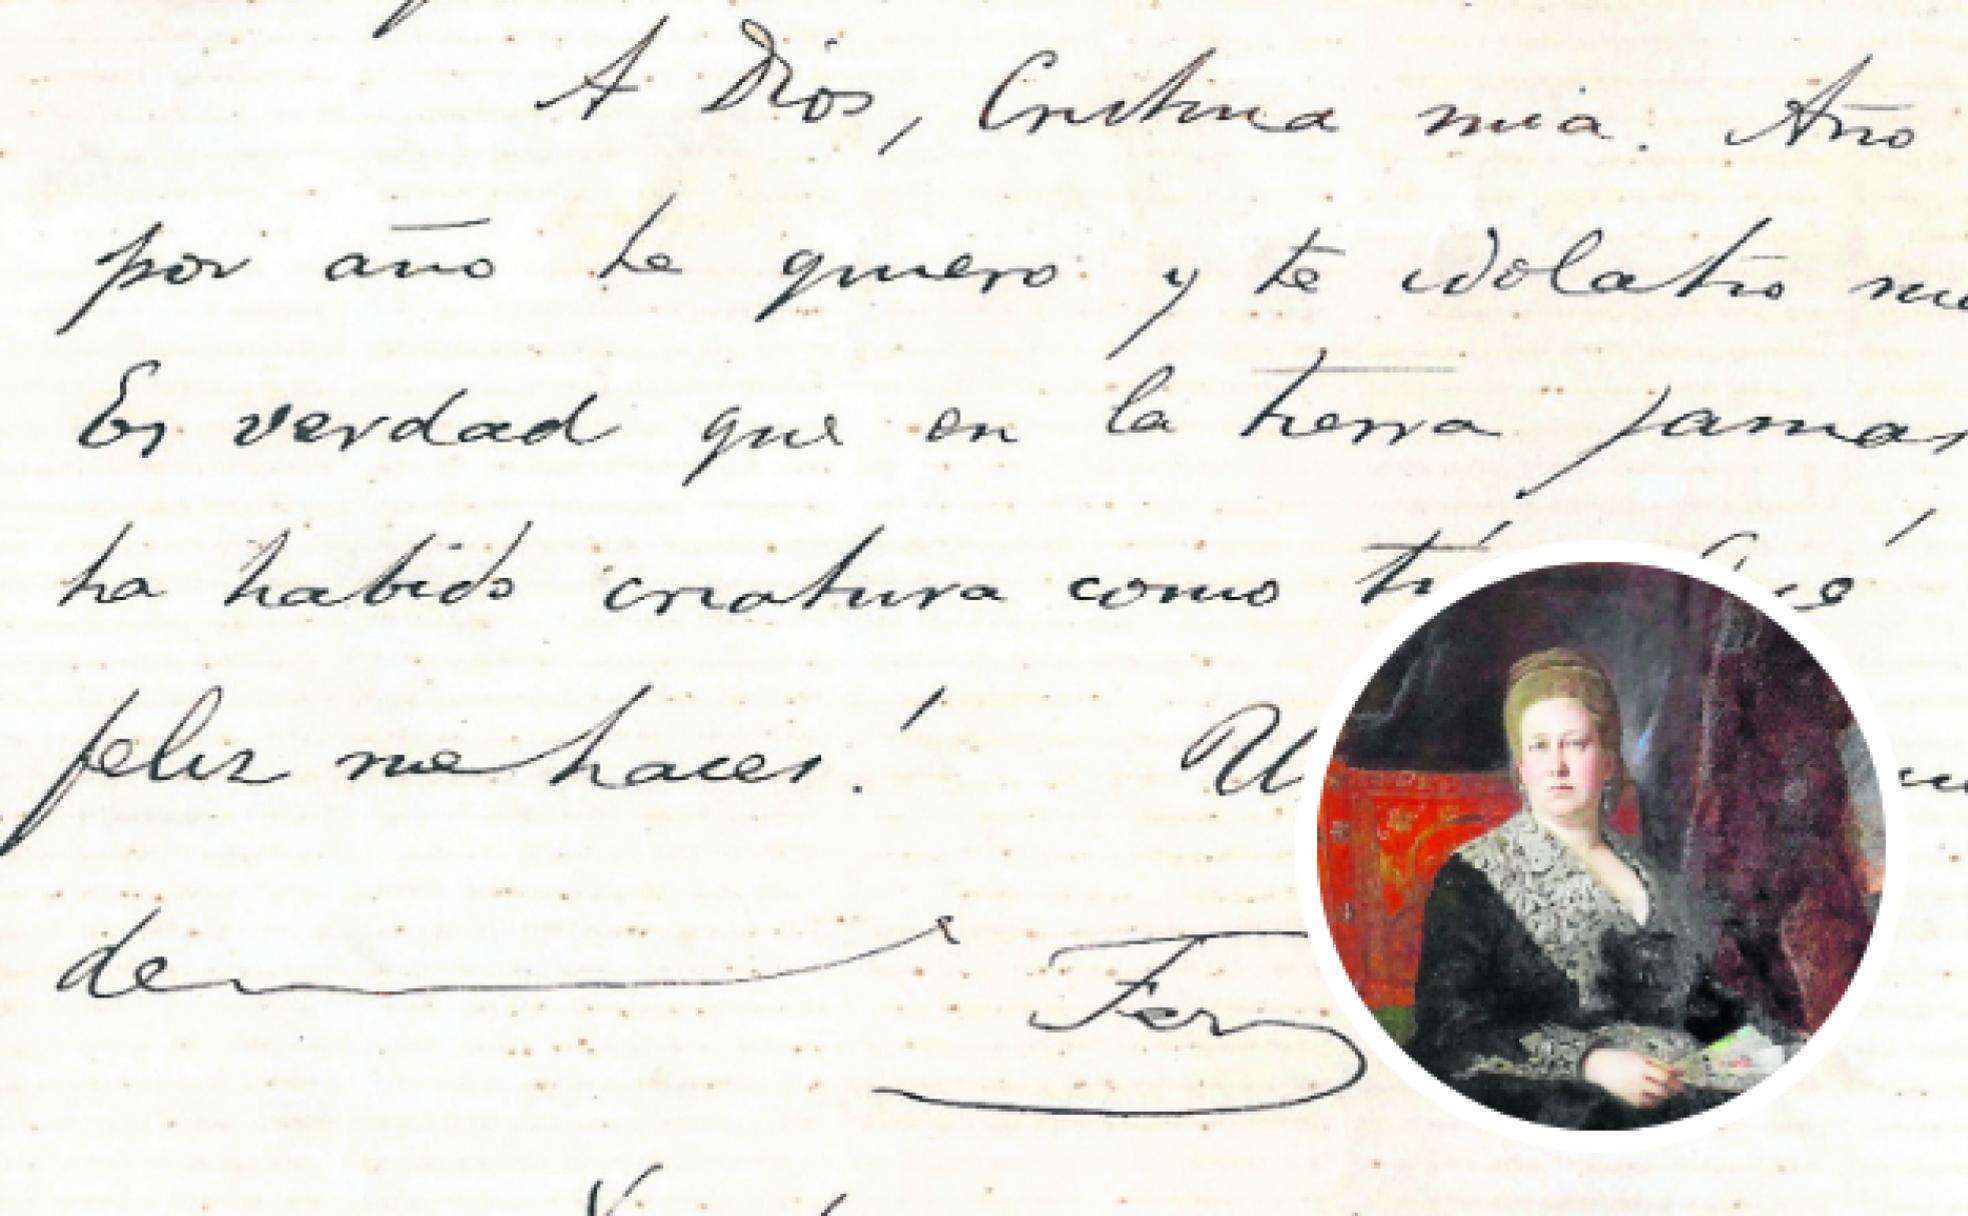 A Dios, Cristina mia. Año
por año te quiero y te idolatro
Es verdad que en la tierra jamas
ha habido criatura como tú
feliz me haces!
de Fer